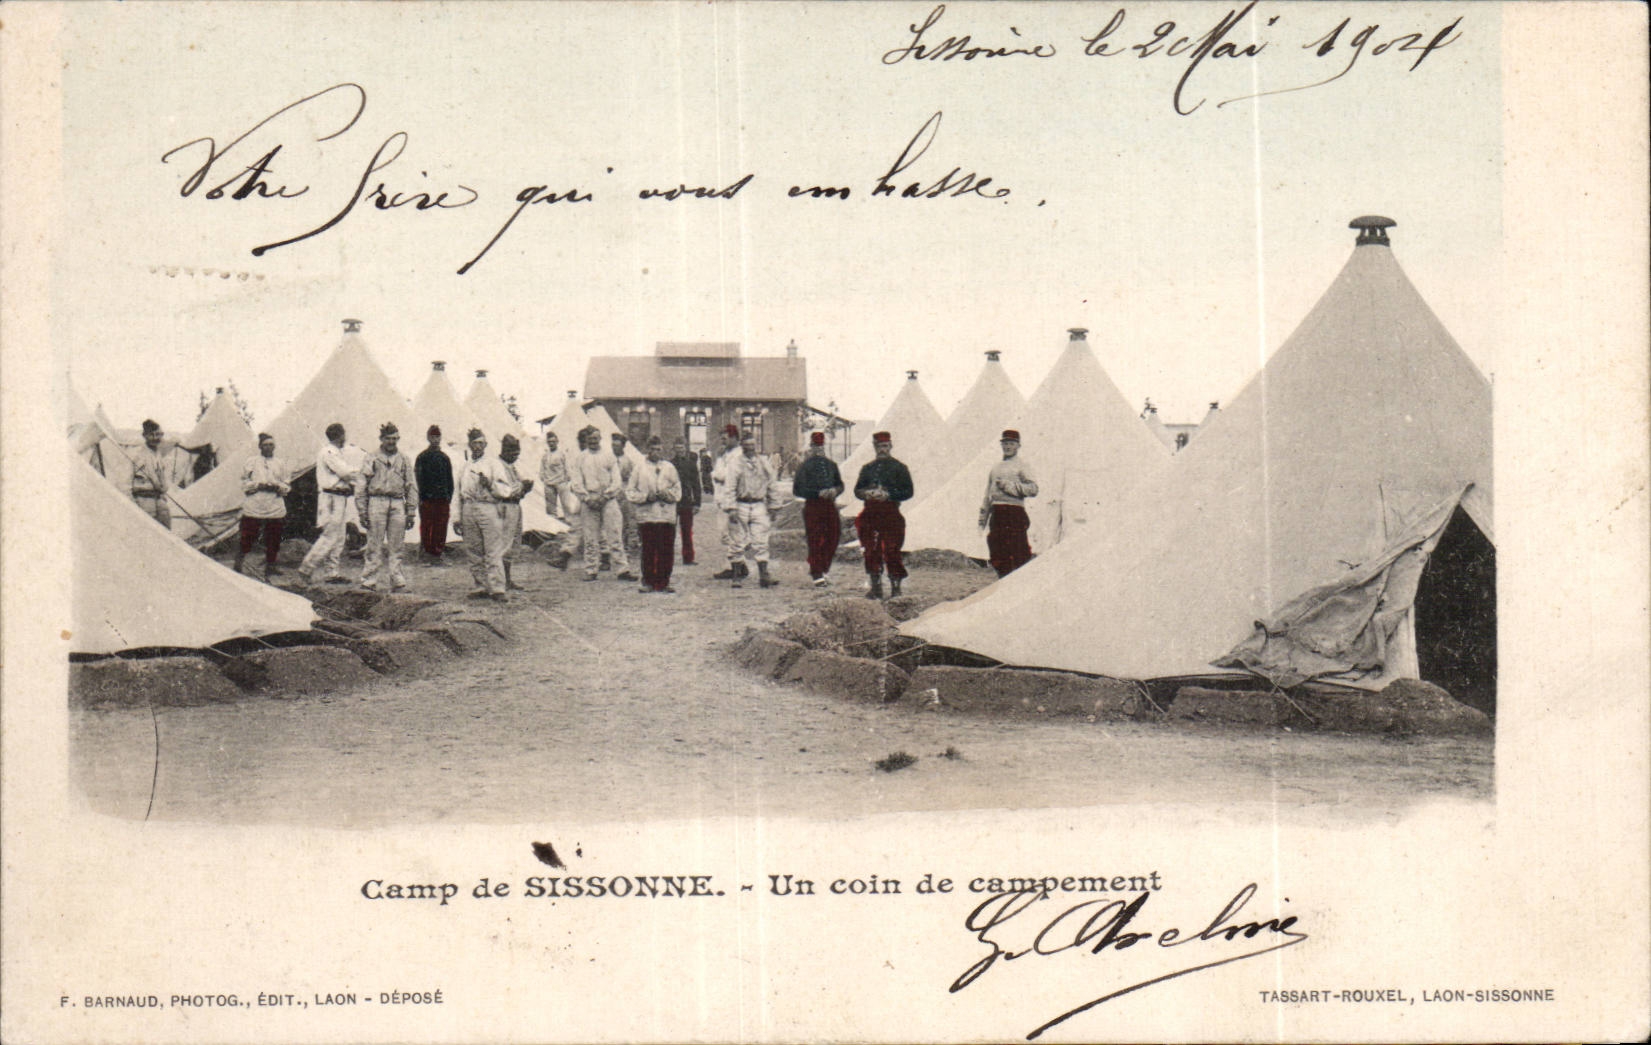 Sissonne le 2 Mai 1904
Votre frère qui vous embrasse.
Camp de SISSONNE. - Un coin de campement
G.
F. BARNAUD, PHOTOG., ÉDIT., LAON - DÉPOSÉ
TASSART-ROUXEL, LAON-SISSONNE